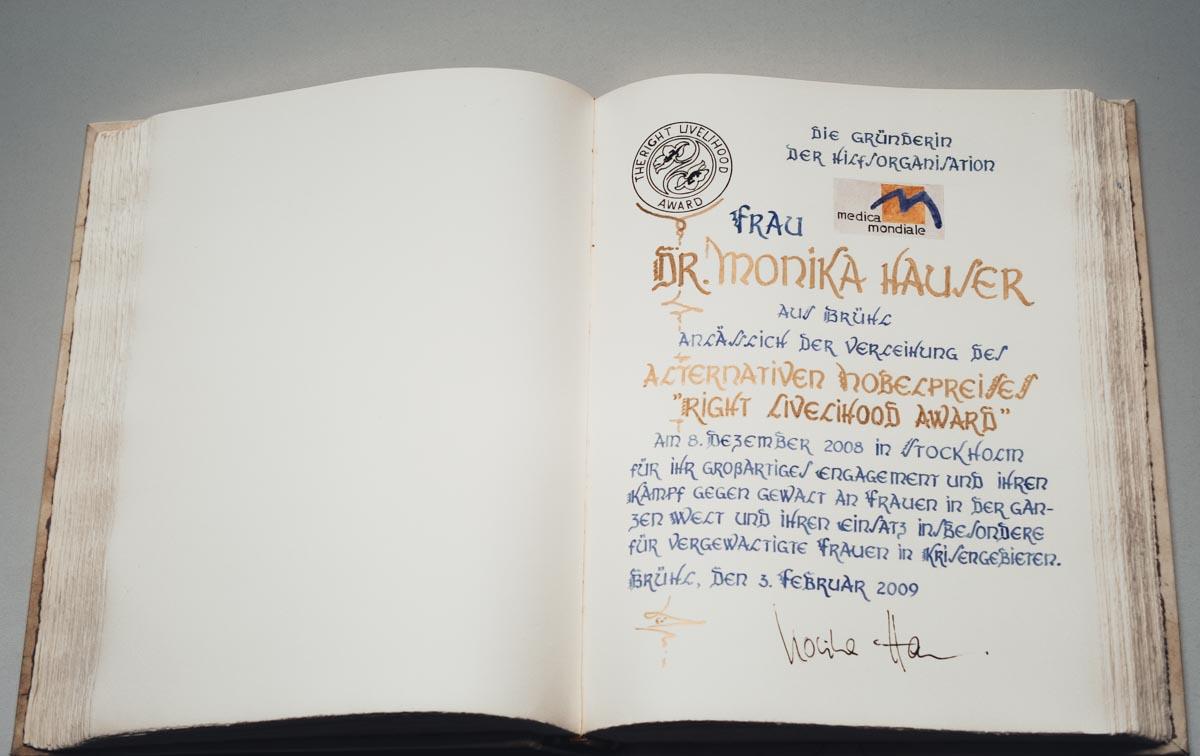 THE RIGHT LIVELIHOOD
AWARD
DIE GRÜNDERIN
DER HILFSORGANISATION
medica
mondiale
FRAU
DR. MONIKA HAUSER
AUS BRÜHL
ANLÄSSLICH DER VERLEIHUNG DES
ALTERNATIVEN NOBELPREISES
"RIGHT LIVELIHOOD AWARD"
AM 8. DEZEMBER 2008 IN STOCKHOLM
FÜR IHR GROßARTIGES ENGAGEMENT UND IHREN
KAMPF GEGEN GEWALT AN FRAUEN IN DER GAN-
ZEN WELT UND IHREN EINSATZ INSBESONDERE
FÜR VERGEWALTIGTE FRAUEN IN KRISENGEBIETEN.
BRÜHL, DEN 3. FEBRUAR 2009
Monika Hau